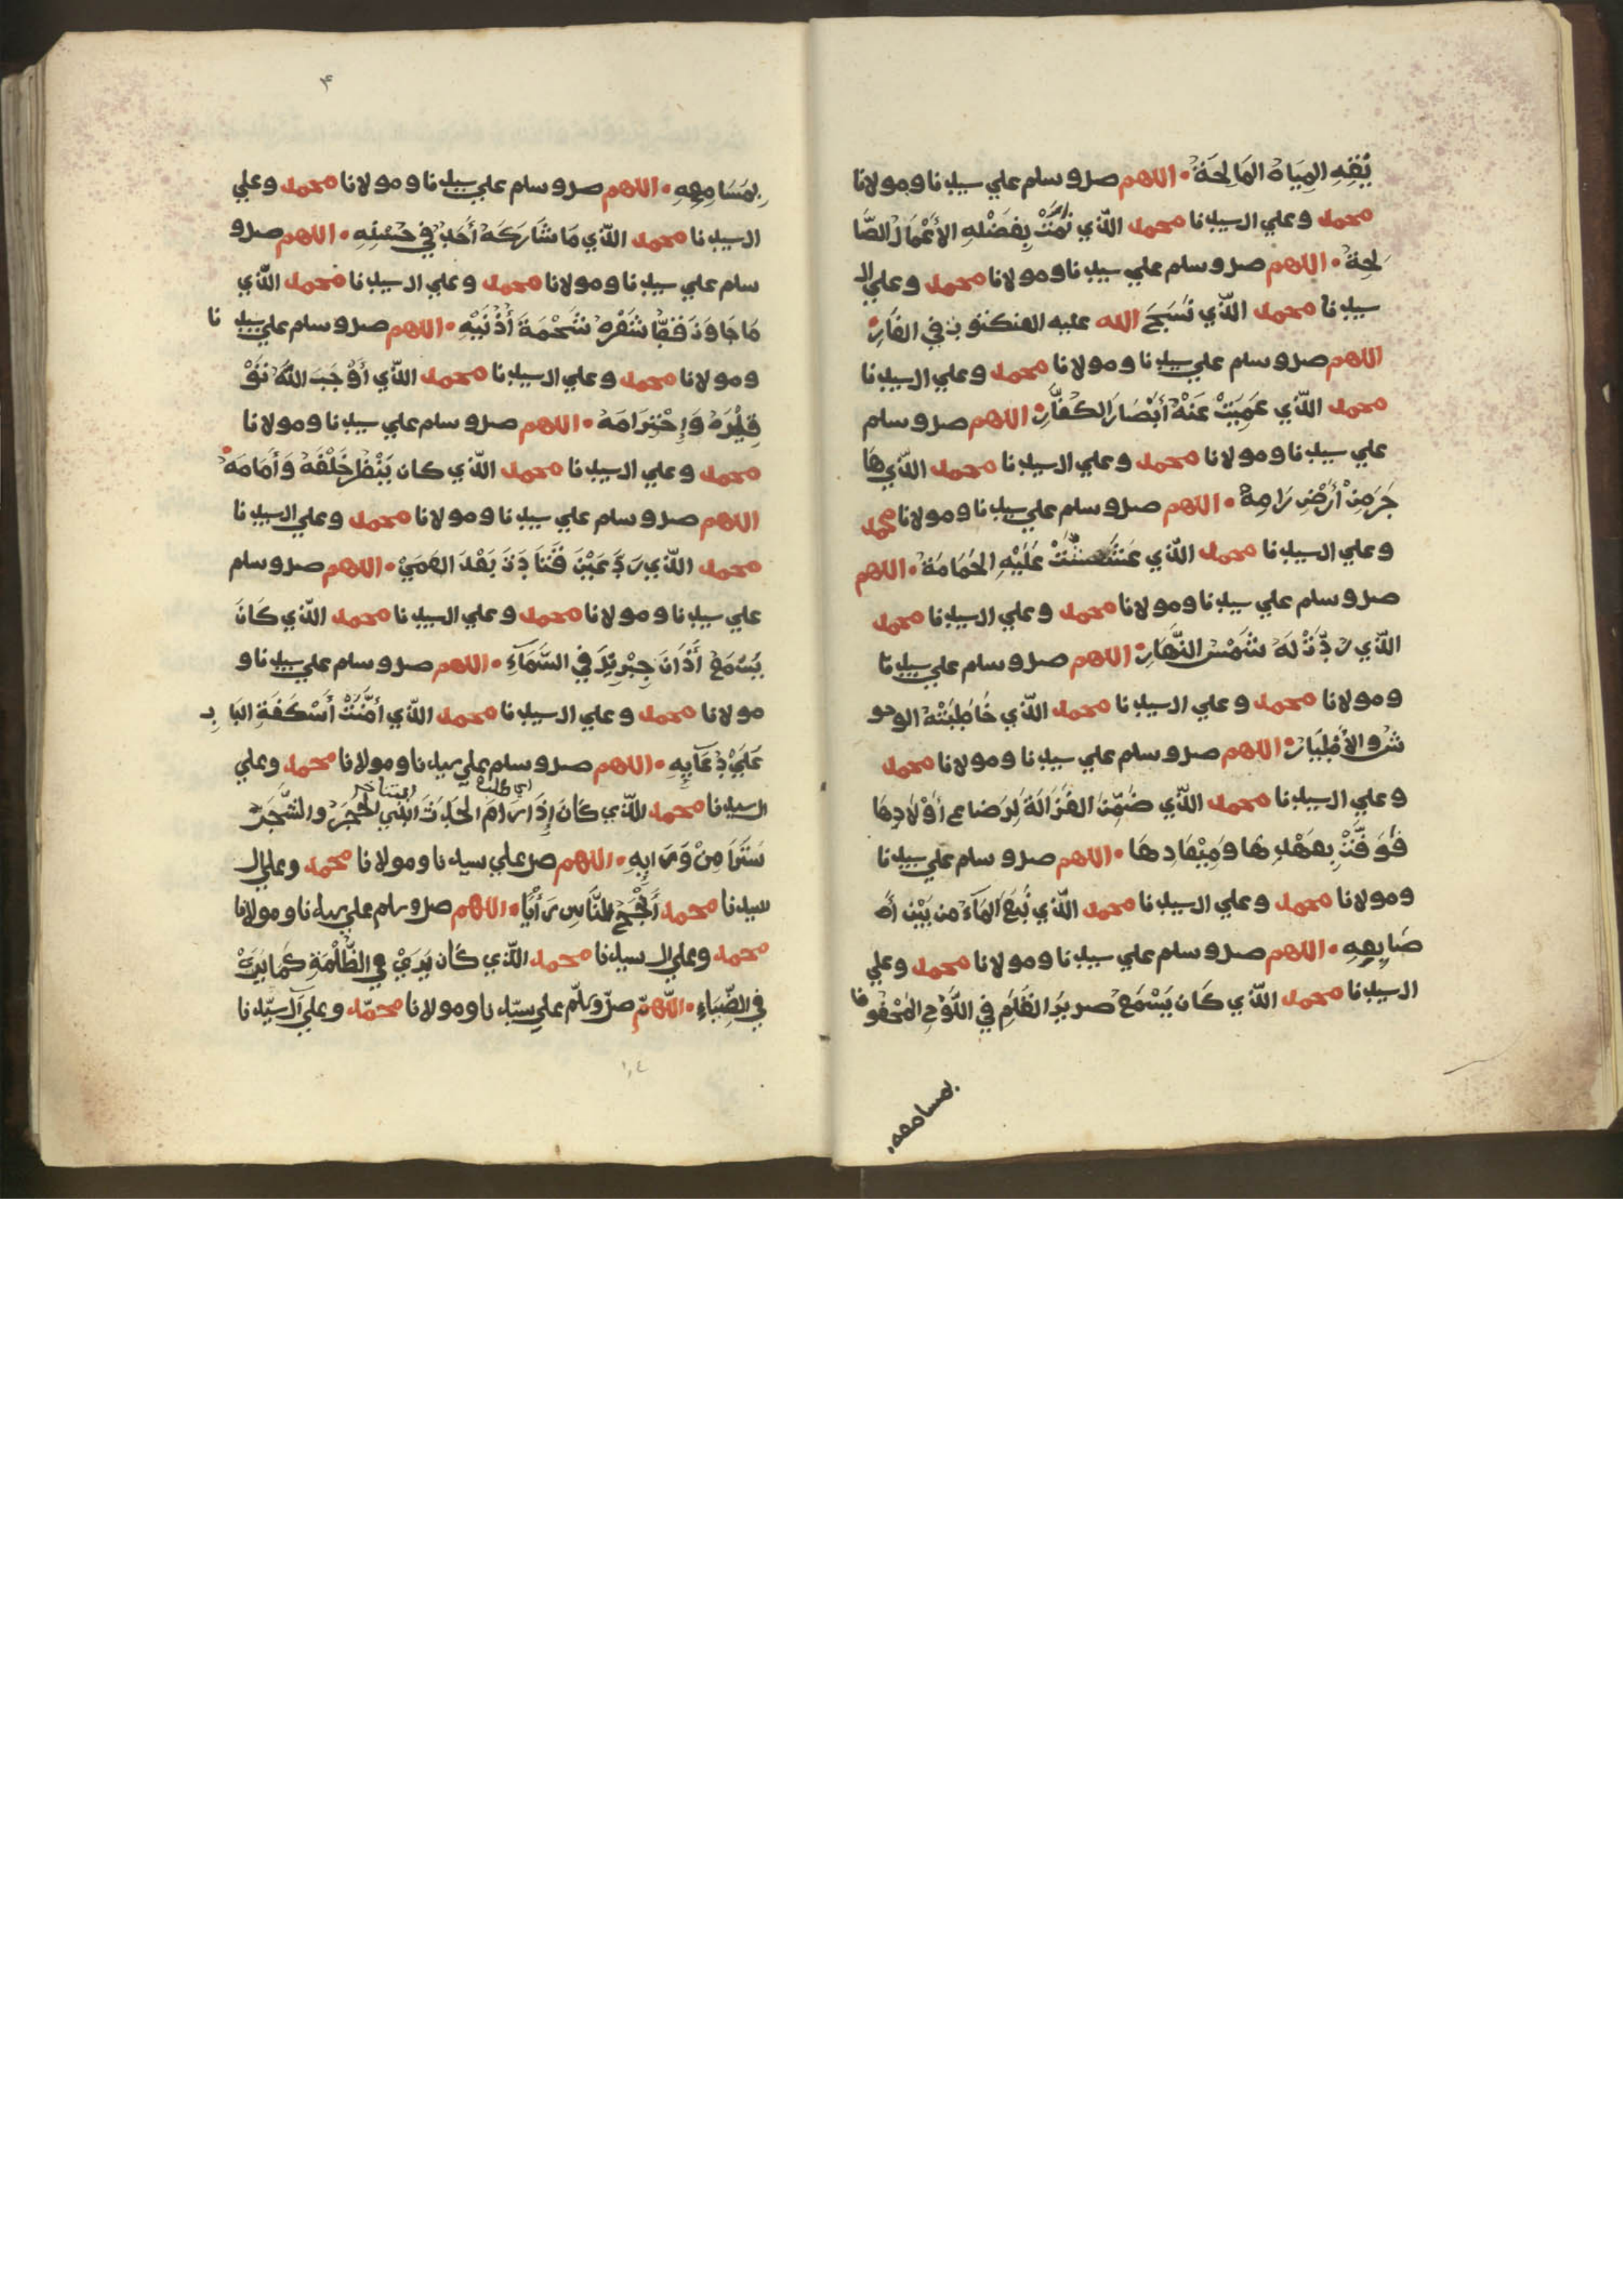 بُقِهِ المِيَاهُ المَالِحَةُ • اللهم صل وسلم علي سيدنا ومولانا
محمد وعلي ال سيدنا محمد الّذي نمَتْ بِفَضْلِهِ الأعْمَالُ الصَّا
لِحَةُ • اللهم صل وسلم علي سيدنا ومولانا محمد وعلي ال
سيدنا محمد الّذي نَسَجَ الله عليه العنكبوت في الغَارِ •
اللهم صل وسلم علي سيدنا ومولانا محمد وعلي ال سيدنا
محمد الّذي عَمِيَتْ عَنْهُ أبْصَارُ الكُفّارِ • اللهم صل وسلم
علي سيدنا ومولانا محمد وعلي ال سيدنا محمد الّذي هَا
جَرَ مِنْ أرْضِ رَامِهْ • اللهم صل وسلم علي سيدنا ومولانا محمد
وعلي ال سيدنا محمد الّذي عَشَّشَتْ عَلَيْهِ الحَمَامَةُ • اللهم
صل وسلم علي سيدنا ومولانا محمد وعلي ال سيدنا محمد
الّذي رُدَّتْ لَهُ شَمْسُ النَّهَارِ • اللهم صل وسلم علي سيدنا
ومولانا محمد وعلي ال سيدنا محمد الّذي خَاطَبَتْهُ الوحو
شُ والأطْيَارُ • اللهم صل وسلم علي سيدنا ومولانا محمد
وعلي ال سيدنا محمد الّذي ضَمِّنَ الغَزَالَةَ لِرَضاعِ أوْلَادِهَا
فَوَفَّتْ بِعَهْدِهَا وَمِيْعَادِهَا • اللهم صل وسلم علي سيدنا
ومولانا محمد وعلي ال سيدنا محمد الّذي نَبَعَ المَآءُ من بَيْنِ أ
صَابِعِهِ • اللهم صل وسلم علي سيدنا ومولانا محمد وعلي
ال سيدنا محمد الّذي كَانَ يَسْمَعُ صرير القَلَمِ في اللَّوْحِ المَحْفُوظ
بمسامعه
۴
بِمَسَامِعِهِ • اللهم صل وسلم علي سيدنا ومولانا محمد وعلي
ال سيدنا محمد الّذي مَا شَارَكَهُ أحَدٌ في حُسْنِهِ • اللهم صل و
سلم علي سيدنا ومولانا محمد وعلي ال سيدنا محمد الّذي
مَا جَاوَزَ قَطُّ شَعْرُهُ شَحْمَةَ أُذُنَيْهِ • اللهم صل وسلم علي سيدنا
ومولانا محمد وعلي ال سيدنا محمد الّذي أوْجَبَ اللهُ تَوْ
قِيْرَهُ وَإحْتِرَامَهُ • اللهم صل وسلم علي سيدنا ومولانا
محمد وعلي ال سيدنا محمد الّذي كان يَنْظُرُ خَلْفَهُ وَأمَامَهُ •
اللهم صل وسلم علي سيدنا ومولانا محمد وعلي ال سيدنا
محمد الّذي رَدَّ عَيْنَ قَتَادَةَ بَعْدَ العَمَيْ • اللهم صل وسلم
علي سيدنا ومولانا محمد وعلي ال سيدنا محمد الّذي كَانَ
يَسْمَعُ أذَانَ جِبْرِيْلَ في السَّمَآءِ • اللهم صل وسلم علي سيدنا و
مولانا محمد وعلي ال سيدنا محمد الّذي أمَّنَتْ أُسْكُفَةُ البَابِ
عَلَيْ دُعَآيِهِ • اللهم صل وسلم علي سيدنا ومولانا محمد وعلي
ال سيدنا محمد الّذي كَانَ إذَا رَامَ الحَدَثَ الحَجَرُ والشَّجَرُ
سَتَرَا مِنْ وَرَايِهِ • اللهم صل علي سيدنا ومولانا محمد وعلي ال
سيدنا محمد أنْجَحُ النَّاسِ رَأيًا • اللهم صل وسلم علي سيدنا ومولانا
محمد وعلي ال سيدنا محمد الّذي كَانَ يَرَيْ في الظُّلْمَةِ كَمَا يَرَيْ
في الضِّيَاءِ • اللّهمّ صلّ وسلّم علي سيّدنا ومولانا محمّد وعلي آل سيّدنا